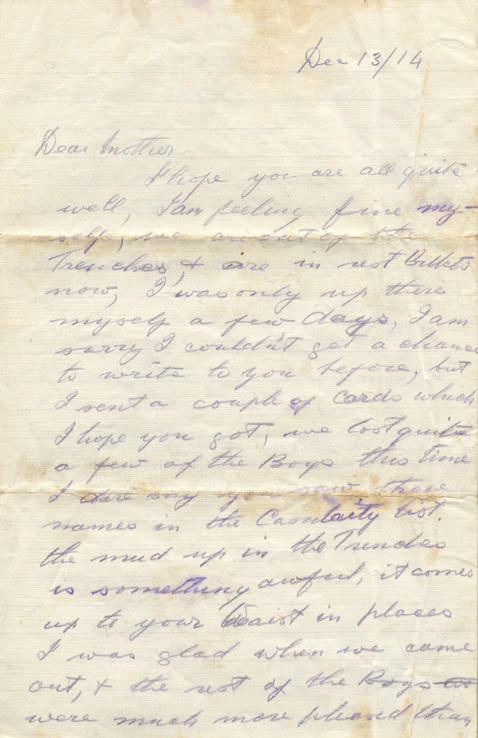 Dec 13/14
Dear Mother
I hope you are all quite
well, I am feeling fine my-
self, we are out of the
Trenches, & are in rest Billets
now, I was only up there
myself a few days, I am
sorry I couldn't get a chance
to write to you before, but
I sent a couple of cards which
I hope you got, we lost quite
a few of the Boys this time
I dare say you saw there
names in the Casulaity list.
the mud up in the Trenches
is something awful, it comes
up to your waist in places
I was glad when we came
out, & the rest of the Boys
were much more pleased than